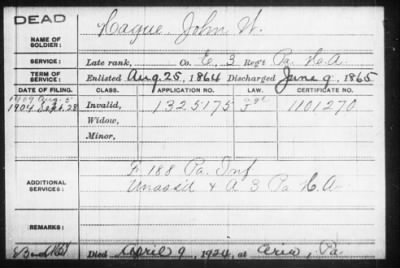 DEAD
NAME OF SOLDIER: Hague John W.
SERVICE: Late rank, Co. E, 3 Reg't Pa. H.A.
TERM OF SERVICE: Enlisted Aug. 25, 1864 Discharged June 9, 1865
DATE OF FILING. CLASS. APPLICATION NO. LAW. CERTIFICATE NO.
1904 Sept. 28 Invalid, 1325175 1101270
Widow,
Minor,
ADDITIONAL SERVICES: F 188 Pa. Inf
Unassd & A 3 Pa H.A.
REMARKS:
Died April 9, 1924, at Erie, Pa